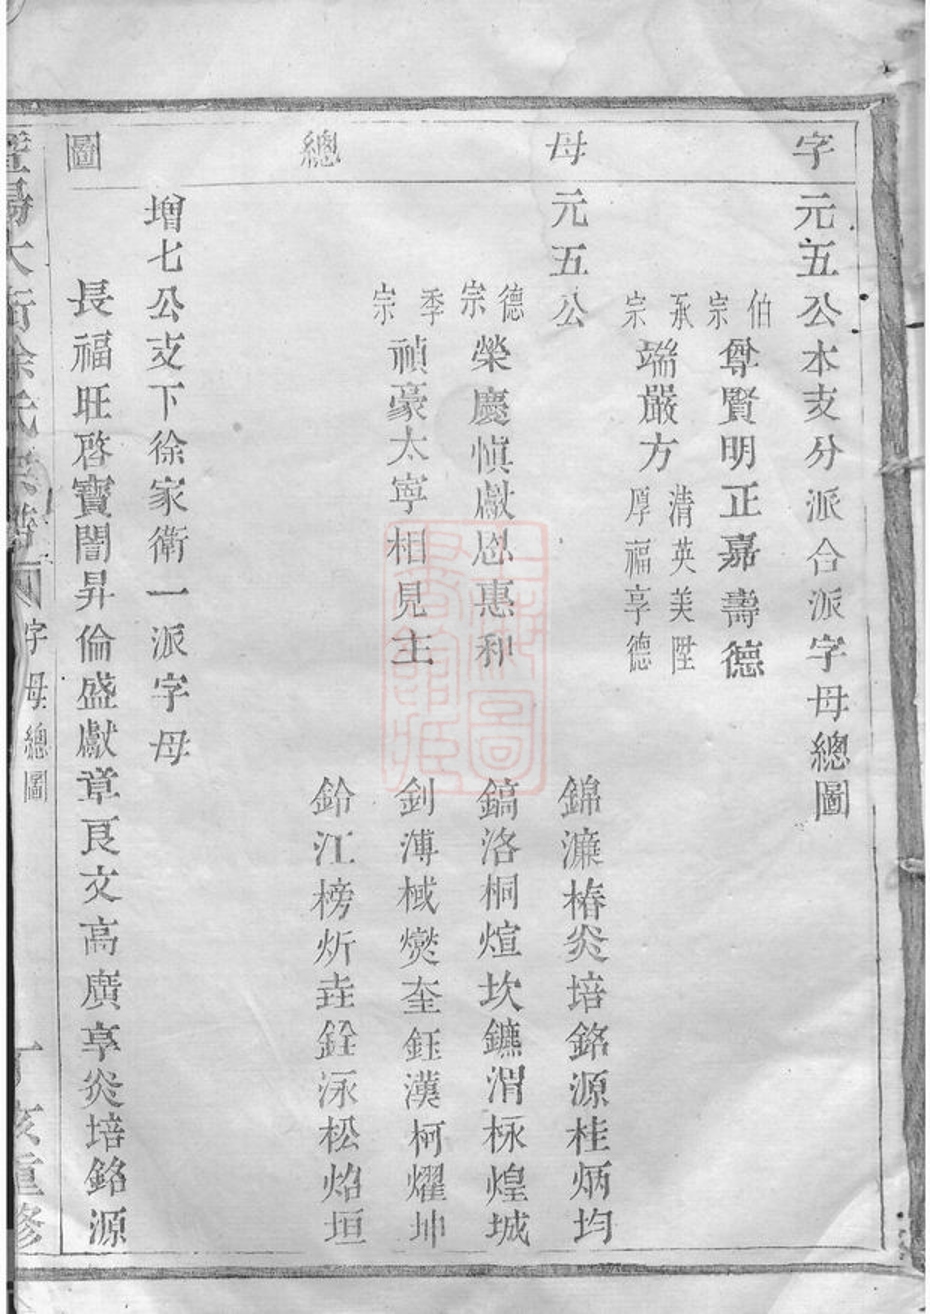 字母總圖
元五公本支分派合派字母總圖
伯宗
尊賢明正嘉壽德
承宗
端嚴方
清英美陞
厚福享德
元五公
德宗
榮慶慎獻恩惠和
季宗
禎豪太寧相見主
錦濂椿炎培銘源桂炳均
鎬洛桐煊坎鑣渭栐煌城
釗溥棫爕奎鈺漢柯燿坤
鈴江榜炘垚銓泳松焰垣
增七公支下徐家衖一派字母
長福旺啓寶誾昇倫盛獻章良文高廣享炎培銘源
徐氏宗譜
字母總圖
丁亥重修